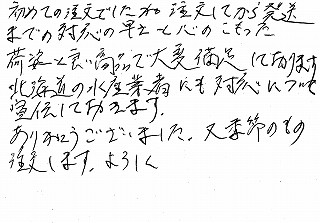 初めての注文でしたが注文してから発送
までの対応の早さと心のこもった
荷姿と良い商品で大変満足して居ります
北海道の水産業者にも対応について
宣伝して居きます。
ありがとうございました。又季節のもの
注文します。よろしく